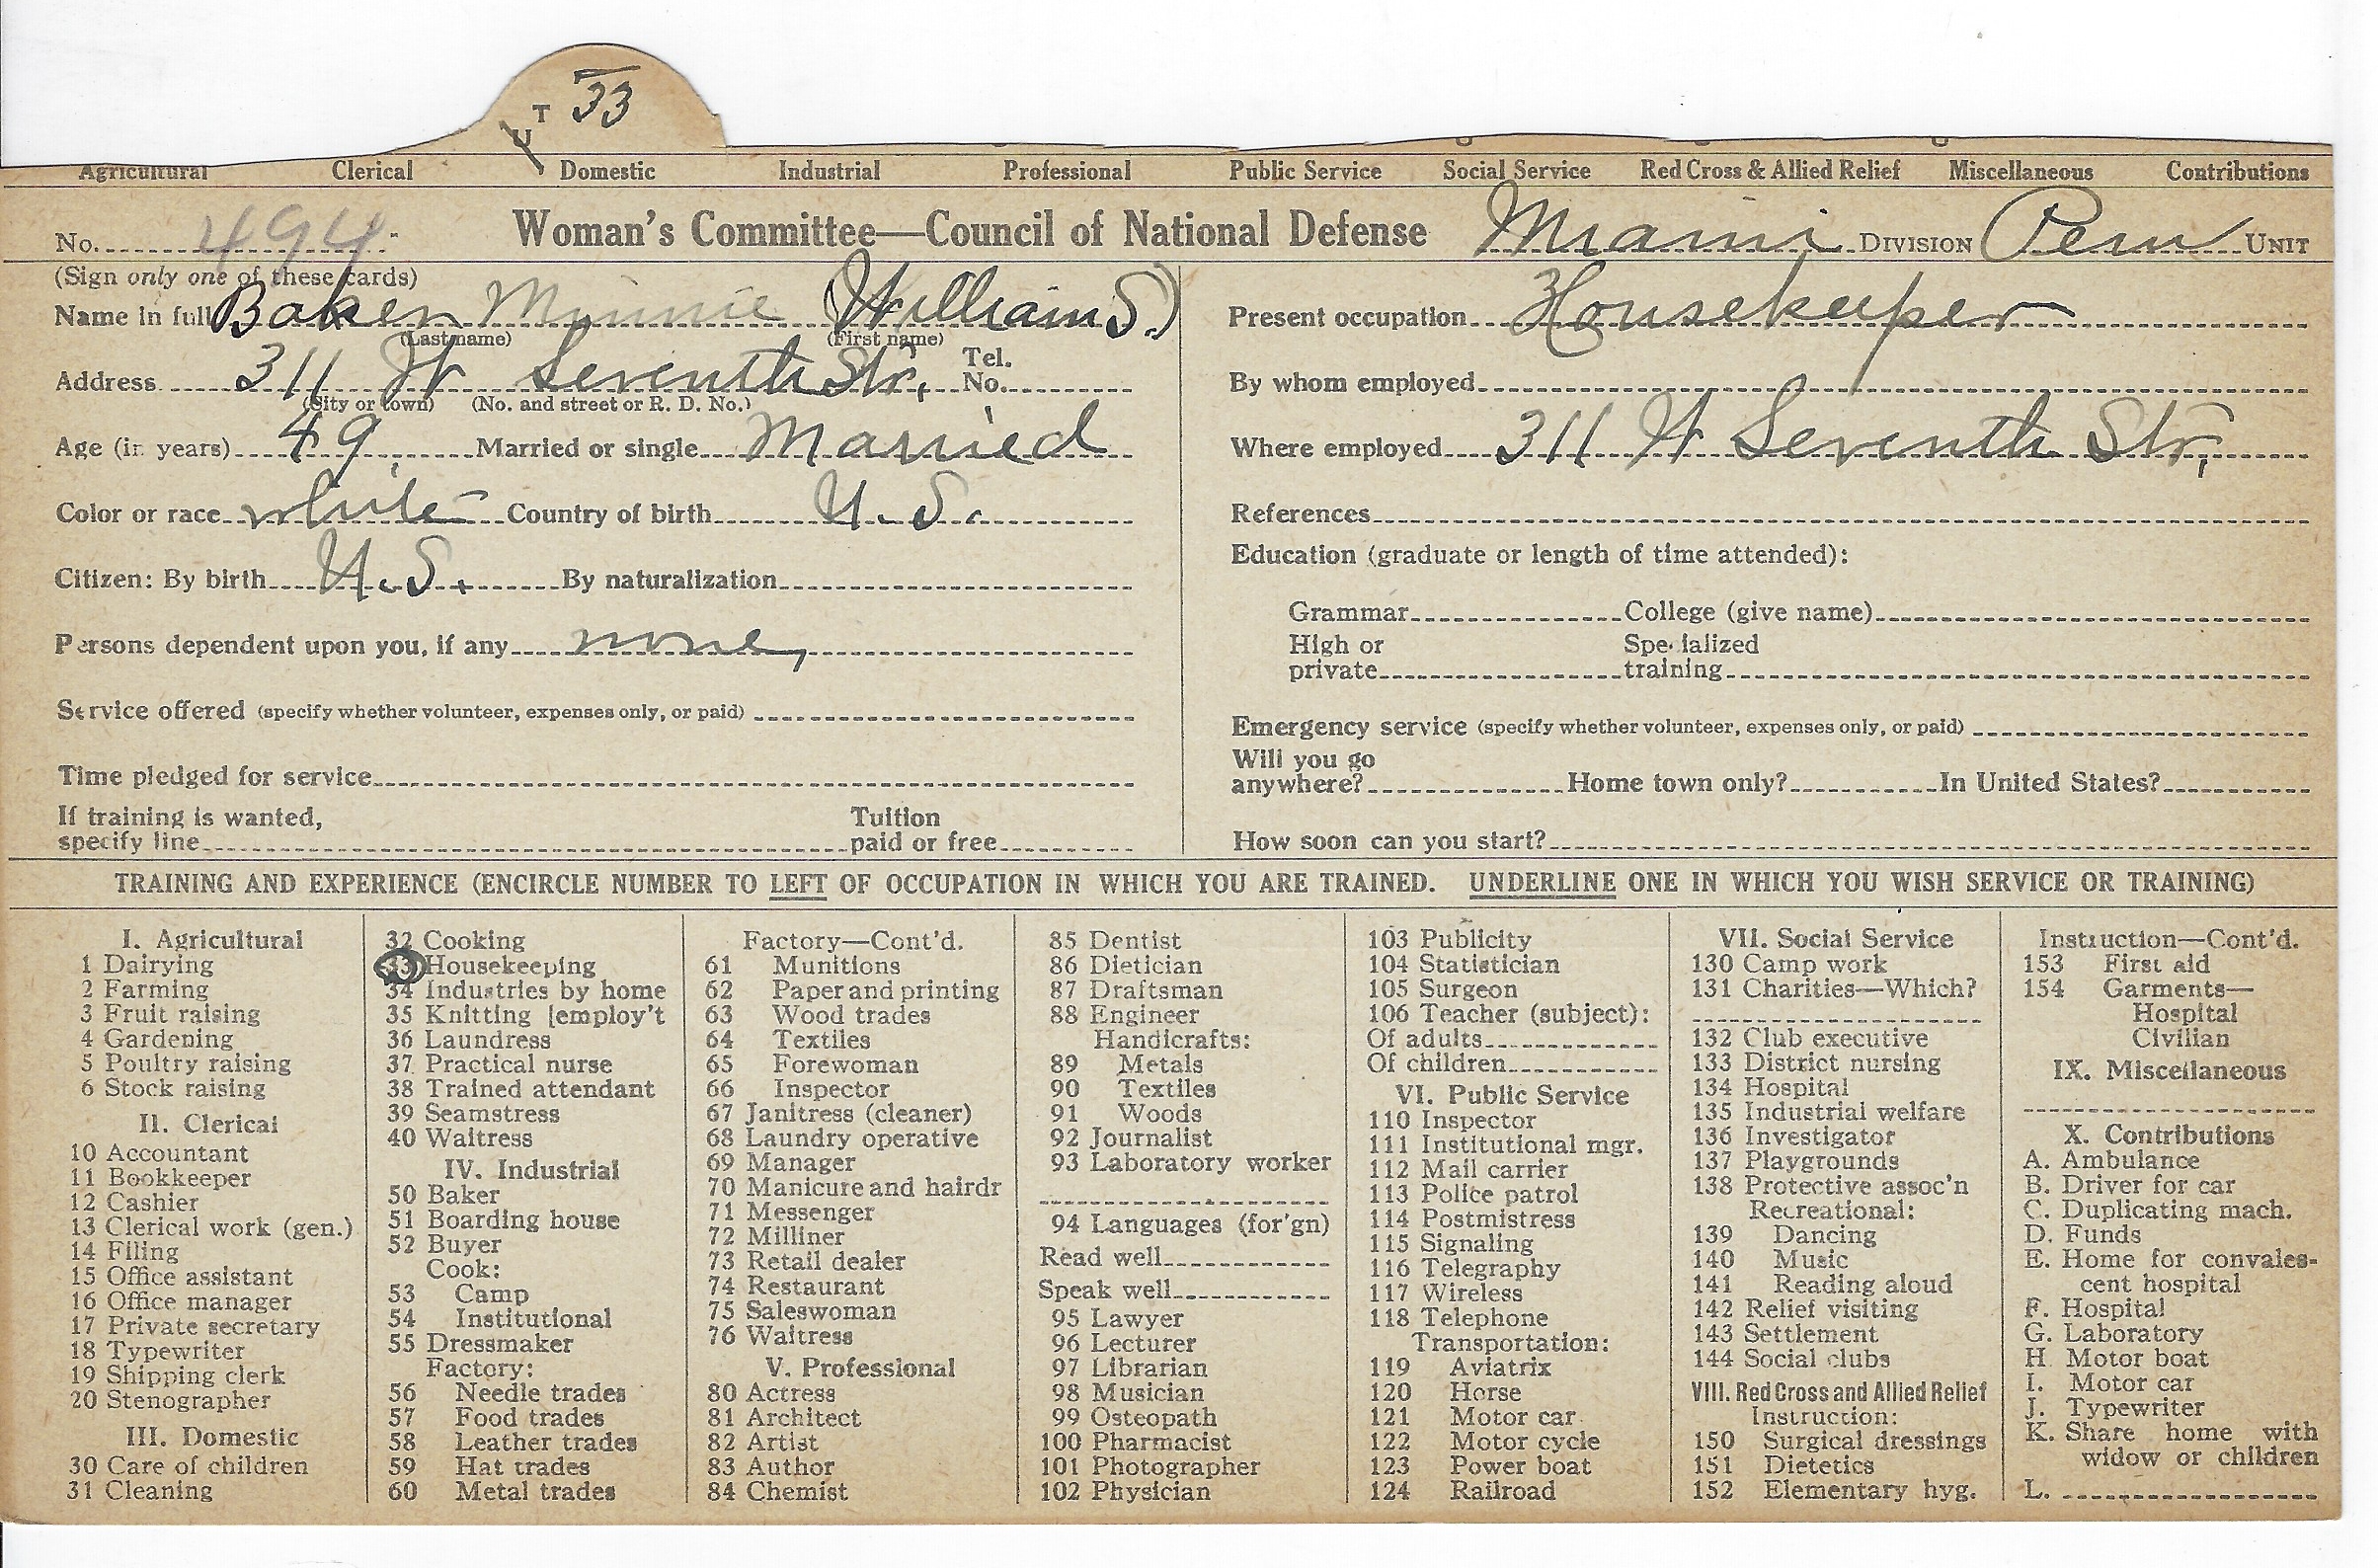 T 33
U
Agricultural Clerical Domestic Industrial Professional Public Service Social Service Red Cross & Allied Relief Miscellaneous Contributions
No. 494 Woman's Committee—Council of National Defense Miami DIVISION Peru UNIT
(Sign only one of these cards)
Name in full Baker Minnie (William S.)
(Last name) (First name)
Address 311 W Seventh Str. Tel. No.
(City or town) (No. and street or R. D. No.)
Age (in years) 49 Married or single Married
Color or race white Country of birth U.S.
Citizen: By birth U.S. By naturalization
Persons dependent upon you, if any none,
Service offered (specify whether volunteer, expenses only, or paid)
Time pledged for service
If training is wanted, specify line Tuition paid or free
Present occupation Housekeeper
By whom employed
Where employed 311 W Seventh Str,
References
Education (graduate or length of time attended):
Grammar College (give name)
High or private Specialized training
Emergency service (specify whether volunteer, expenses only, or paid)
Will you go anywhere? Home town only? In United States?
How soon can you start?
TRAINING AND EXPERIENCE (ENCIRCLE NUMBER TO LEFT OF OCCUPATION IN WHICH YOU ARE TRAINED. UNDERLINE ONE IN WHICH YOU WISH SERVICE OR TRAINING)
I. Agricultural
1 Dairying
2 Farming
3 Fruit raising
4 Gardening
5 Poultry raising
6 Stock raising
II. Clerical
10 Accountant
11 Bookkeeper
12 Cashier
13 Clerical work (gen.)
14 Filing
15 Office assistant
16 Office manager
17 Private secretary
18 Typewriter
19 Shipping clerk
20 Stenographer
III. Domestic
30 Care of children
31 Cleaning
32 Cooking
33 Housekeeping
34 Industries by home
35 Knitting [employ't
36 Laundress
37 Practical nurse
38 Trained attendant
39 Seamstress
40 Waitress
IV. Industrial
50 Baker
51 Boarding house
52 Buyer
Cook:
53 Camp
54 Institutional
55 Dressmaker
Factory:
56 Needle trades
57 Food trades
58 Leather trades
59 Hat trades
60 Metal trades
Factory—Cont'd.
61 Munitions
62 Paper and printing
63 Wood trades
64 Textiles
65 Forewoman
66 Inspector
67 Janitress (cleaner)
68 Laundry operative
69 Manager
70 Manicure and hairdr
71 Messenger
72 Milliner
73 Retail dealer
74 Restaurant
75 Saleswoman
76 Waitress
V. Professional
80 Actress
81 Architect
82 Artist
83 Author
84 Chemist
85 Dentist
86 Dietician
87 Draftsman
88 Engineer
Handicrafts:
89 Metals
90 Textiles
91 Woods
92 Journalist
93 Laboratory worker
94 Languages (for'gn)
Read well
Speak well
95 Lawyer
96 Lecturer
97 Librarian
98 Musician
99 Osteopath
100 Pharmacist
101 Photographer
102 Physician
103 Publicity
104 Statistician
105 Surgeon
106 Teacher (subject):
Of adults
Of children
VI. Public Service
110 Inspector
111 Institutional mgr.
112 Mail carrier
113 Police patrol
114 Postmistress
115 Signaling
116 Telegraphy
117 Wireless
118 Telephone
Transportation:
119 Aviatrix
120 Horse
121 Motor car
122 Motor cycle
123 Power boat
124 Railroad
VII. Social Service
130 Camp work
131 Charities—Which?
132 Club executive
133 District nursing
134 Hospital
135 Industrial welfare
136 Investigator
137 Playgrounds
138 Protective assoc'n
Recreational:
139 Dancing
140 Music
141 Reading aloud
142 Relief visiting
143 Settlement
144 Social clubs
VIII. Red Cross and Allied Relief
Instruction:
150 Surgical dressings
151 Dietetics
152 Elementary hyg.
Instruction—Cont'd.
153 First aid
154 Garments—
Hospital
Civilian
IX. Miscellaneous
X. Contributions
A. Ambulance
B. Driver for car
C. Duplicating mach.
D. Funds
E. Home for convales-
cent hospital
F. Hospital
G. Laboratory
H. Motor boat
I. Motor car
J. Typewriter
K. Share home with
widow or children
L.